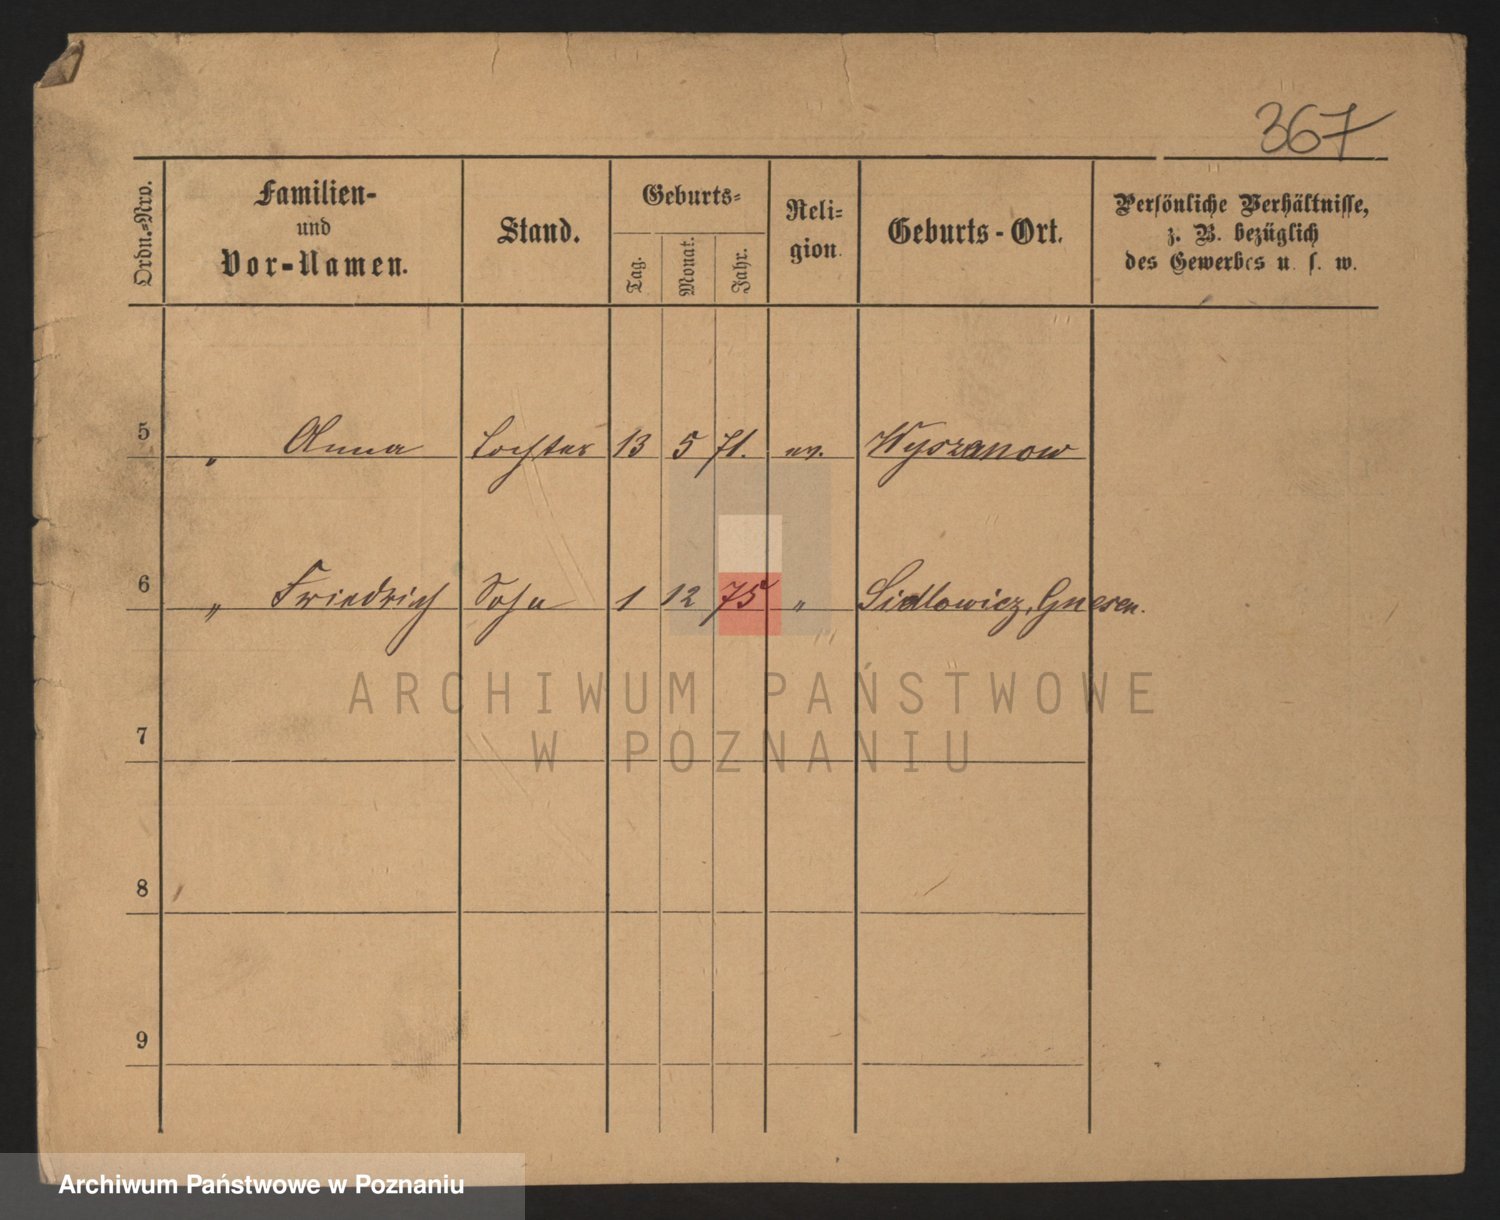 367
Ordn.-Nro.
Familien-
und
Vor-Namen.
Stand.
Geburts-
Tag.
Monat.
Jahr.
Reli-
gion.
Geburts-Ort.
Persönliche Verhältnisse,
z. B. bezüglich
des Gewerbes u. s. w.
5 „ Anna Tochter 13 5 71. ev. Wyszanow
6 „ Friedrich Sohn 1 12 75 „ Sidlowicz, Gnesen.
ARCHIWUM PAŃSTWOWE
W POZNANIU
7
8
9
Archiwum Państwowe w Poznaniu